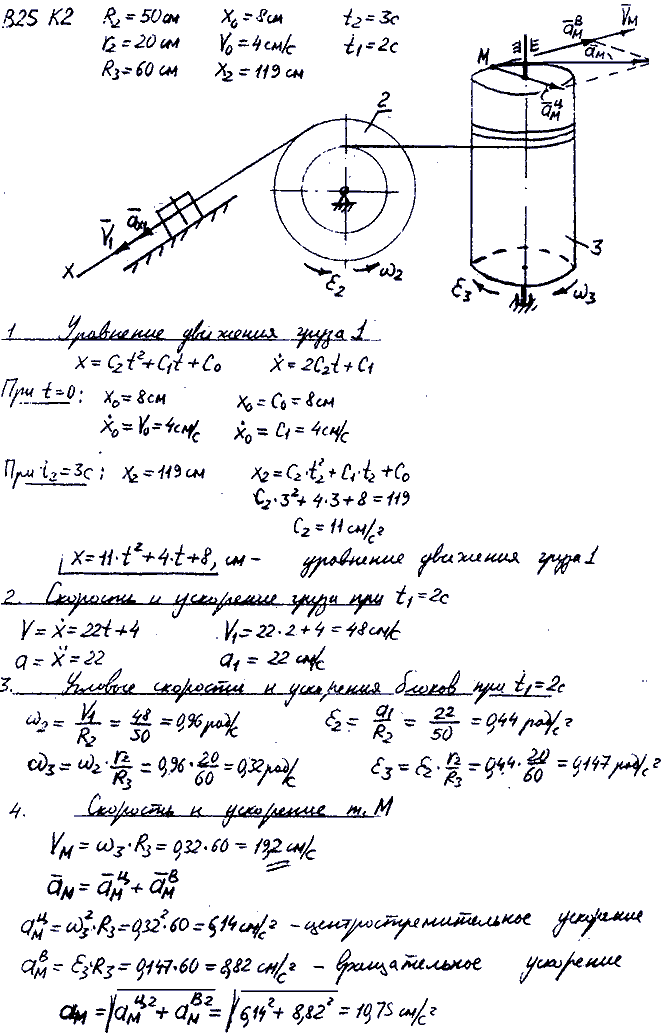 В25 К2 R₂=50см x₀=8см t₂=3с
r₂=20см V₀=4см/с t₁=2с
R₃=60см x₂=119см
M E a̅ᴮ_M V̅_M
a̅_M
a̅ᶜ_M
2
V̅₁ a̅
X
ε₂ ω₂
3
ε₃ ω₃
1 Уравнение движения груза 1
x=C₂t²+C₁t+C₀ ẋ=2C₂t+C₁
При t=0: x₀=8см x₀=C₀=8см
ẋ₀=V₀=4см/с ẋ₀=C₁=4см/с
При t₂=3с: x₂=119см x₂=C₂·t₂²+C₁·t₂+C₀
C₂·3²+4·3+8=119
C₂=11см/с²
x=11·t²+4·t+8, см – уравнение движения груза 1
2. Скорость и ускорение груза при t₁=2с
V=ẋ=22t+4 V₁=22·2+4=48см/с
a=ẍ=22 a₁=22см/с
3. Угловые скорости и ускорения блоков при t₁=2с
ω₂=V₁/R₂=48/50=0,96рад/с ε₂=a₁/R₂=22/50=0,44рад/с²
ω₃=ω₂·r₂/R₃=0,96·20/60=0,32рад/с ε₃=ε₂·r₂/R₃=0,44·20/60=0,147рад/с²
4. Скорость и ускорение т. М
V_M=ω₃·R₃=0,32·60=19,2см/с
a̅_M=a̅ᶜ_M+a̅ᴮ_M
aᶜ_M=ω₃²·R₃=0,32²·60=6,14см/с² – центростремительное ускорение
aᴮ_M=ε₃·R₃=0,147·60=8,82см/с² – вращательное ускорение
a_M=√(aᶜ_M²+aᴮ_M²)=√(6,14²+8,82²)=10,75см/с²